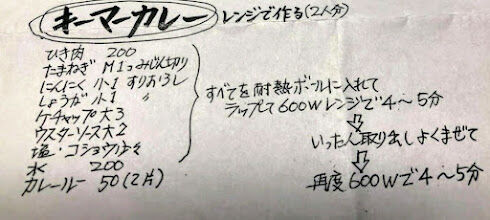 キーマーカレー レンジで作る(2人分)
ひき肉 200
たまねぎ M1コみじん切り
にんにく 小1 すりおろし
しょうが 小1 〃
ケチャップ大3
ウスターソース大2
塩・コショウ少々
水 200
カレールー 50(2片)
すべてを耐熱ボールに入れて
ラップして600Wレンジで4〜5分
⇩
いったん取り出しよくまぜて
⇩
再度600Wで4〜5分